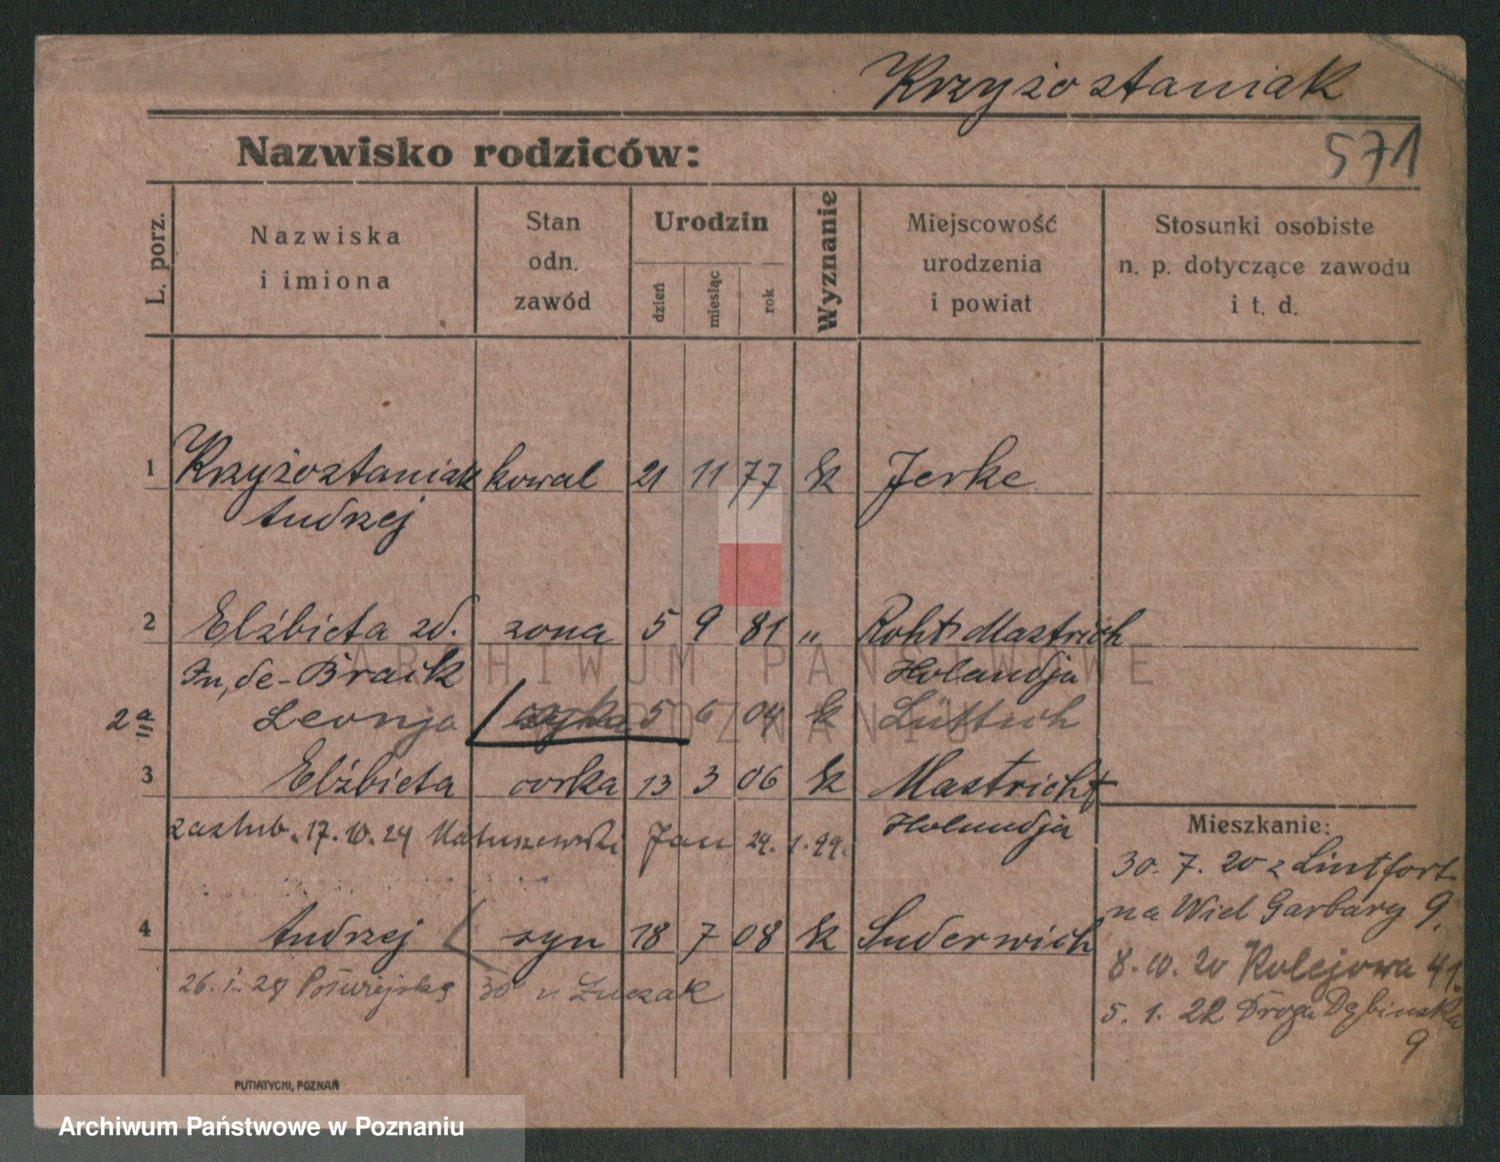 Krzyżostaniak
571
Nazwisko rodziców:
L. porz.
Nazwiska
i imiona
Stan
odn.
zawód
Urodzin
dzień
miesiąc
rok
Wyznanie
Miejscowość
urodzenia
i powiat
Stosunki osobiste
n. p. dotyczące zawodu
i t. d.
1 Krzyżostaniak kowal 21 11 77 k Jerke
Andrzej
2 Elżbieta zd. żona 5 9 81 „ Roht Mastrich
de-Braik Holandja
2a Leonja 5 6 04 k Lüttich
3 Elżbieta corka 13 3 06 k Mastricht
Holandja
zaslub. 17.10.24 Matuszewski Jan 24. 1. 99.
4 Andrzej syn 18 7 08 k Suderwich
26. 1. 28 30
Mieszkanie:
30. 7. 20 z Lintfort
na Wiel Garbary 9.
8. 10. 20 Kolejowa 41.
5. 1. 22 Droga Dębinska
9
PUTIATYCKI, POZNAŃ
ARCHIWUM PAŃSTWOWE
W POZNANIU
Archiwum Państwowe w Poznaniu